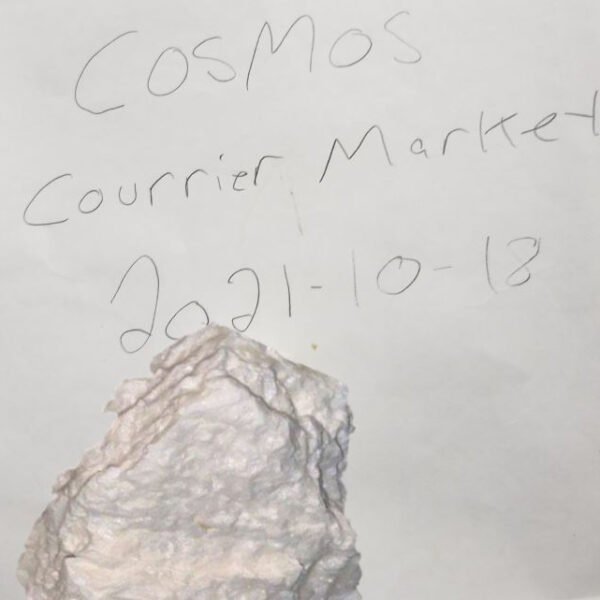 Cosmos
Courrier Market
2021-10-18